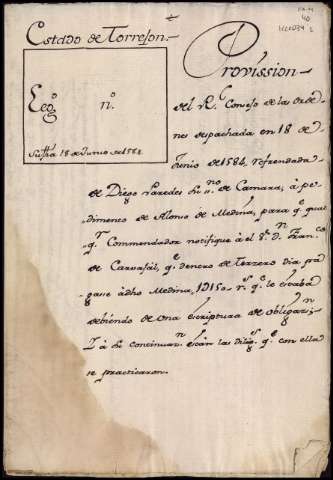 Estado de Torrejon.
Leg.º n.º
Su fha 18 de Junio de 1584.
Provission
del R.l Consejo de las Orde-
nes despachada en 18 de
Junio de 1584. refrendada
de Diego Paredes Ss.no de Camara, à pe-
dimento de Alonso de Medina, para q.e qual
q.r Commendador notifique à el S.r D.n Fran.co
de Carvajal, q.e dentro de Terzero dia pa
gase à dho Medina, 1915o r.s q.e le estaba
debiendo de una escriptura de obligaz.n
Ì à su continuaz.n están las dilig.s q.e con ella
se practicaron.